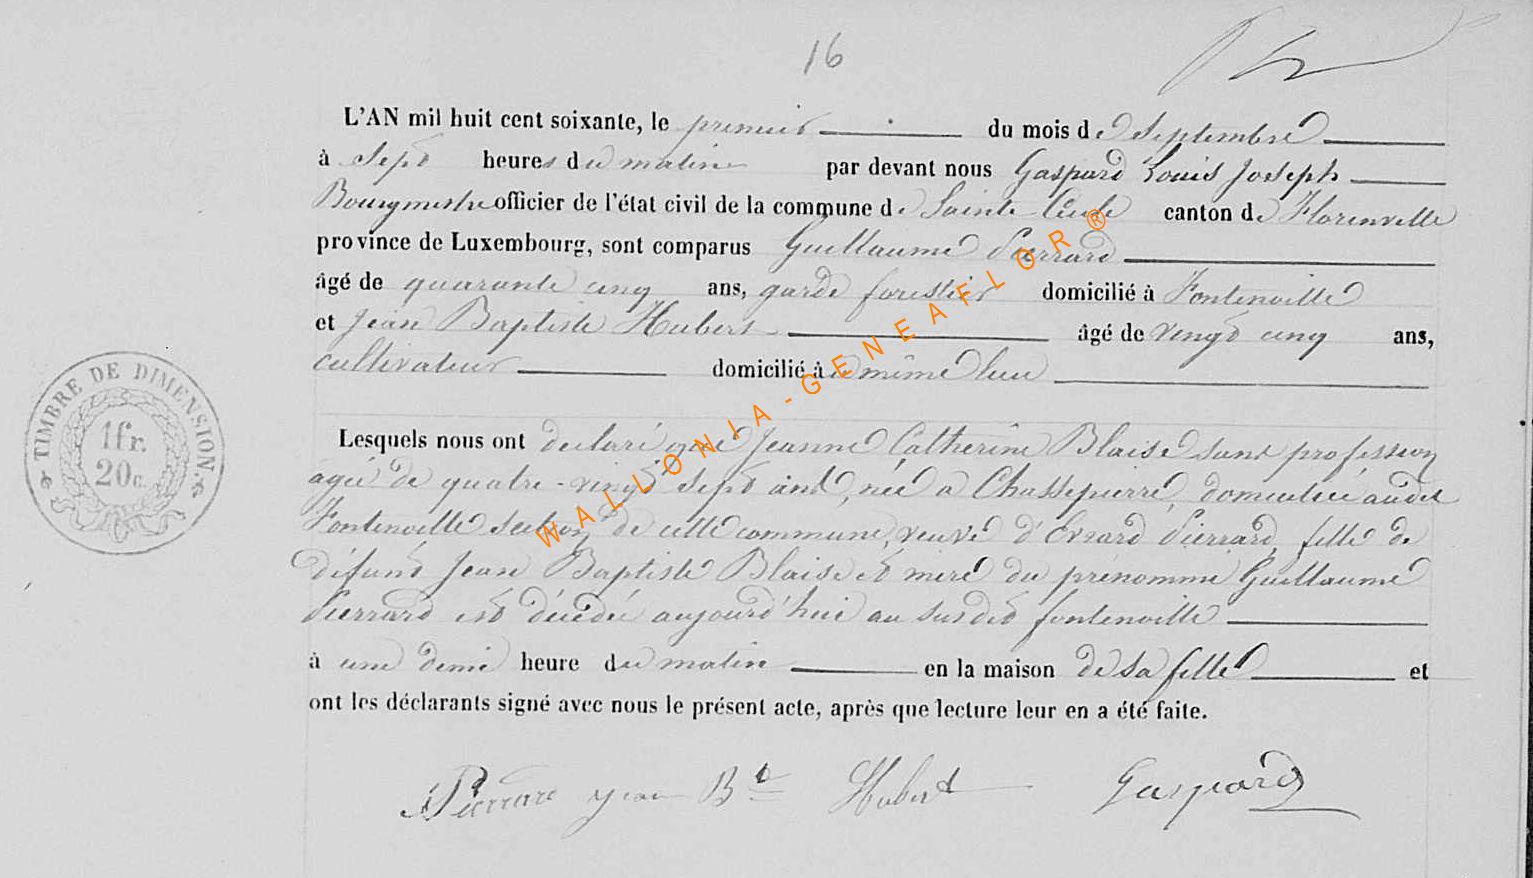 16
L'AN mil huit cent soixante, le premier du mois de septembre
à sept heures du matin par devant nous Gaspard Louis Joseph
Bourgmestre officier de l'état civil de la commune de Sainte Cécile canton de Florenville
province de Luxembourg, sont comparus Guillaume Pierrard
âgé de quarante cinq ans, garde forestier domicilié à Fontenoille
et Jean Baptiste Hubert âgé de vingt cinq ans,
cultivateur domicilié à même lieu
Lesquels nous ont declaré que Jeanne Catherine Blaise sans profession
agée de quatre-vingt sept ans, née a Chassepierre, domiciliée audit
Fontenoille section de cette commune, veuve d'Evrard Pierrard, fille de
défunt Jean Baptiste Blaise et mere du prénommé Guillaume
Pierrard est décédée aujourd'hui au susdit fontenoille
à une demi heure du matin en la maison de sa fille et
ont les déclarants signé avec nous le présent acte, après que lecture leur en a été faite.
Pierrard Jean Bte Hubert Gaspard
TIMBRE DE DIMENSION.
1fr.
20c.
WALLONIA-GENEAFLOR®